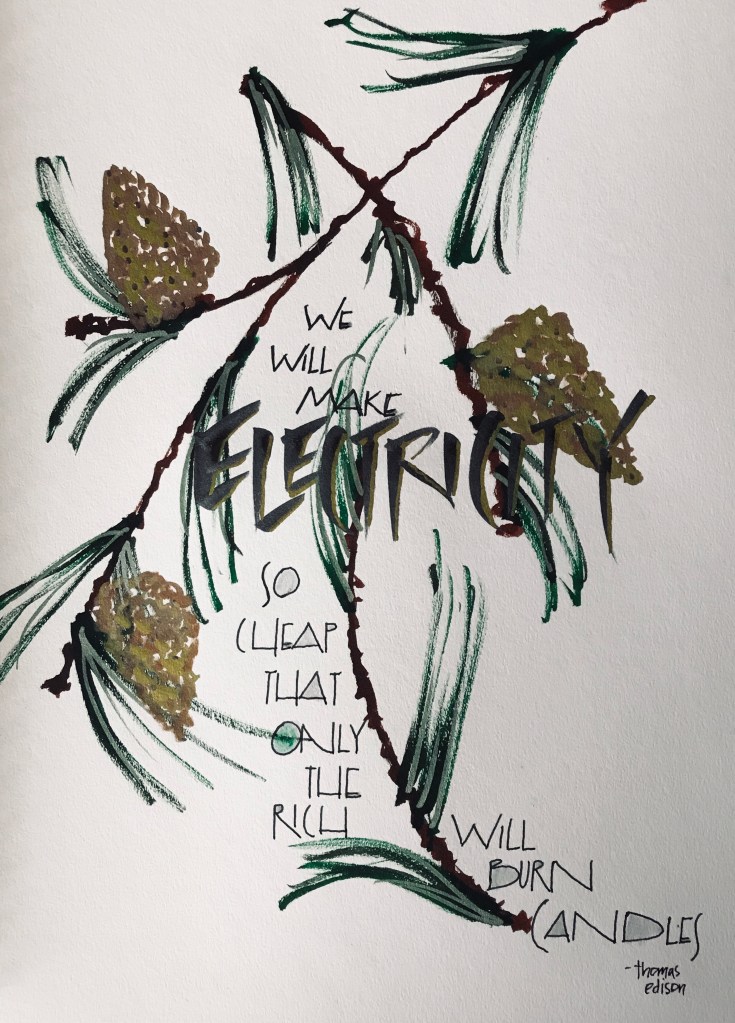 WE
WILL
MAKE
ELECTRICITY
SO
CHEAP
THAT
ONLY
THE
RICH
WILL
BURN
CANDLES
- thomas
edison